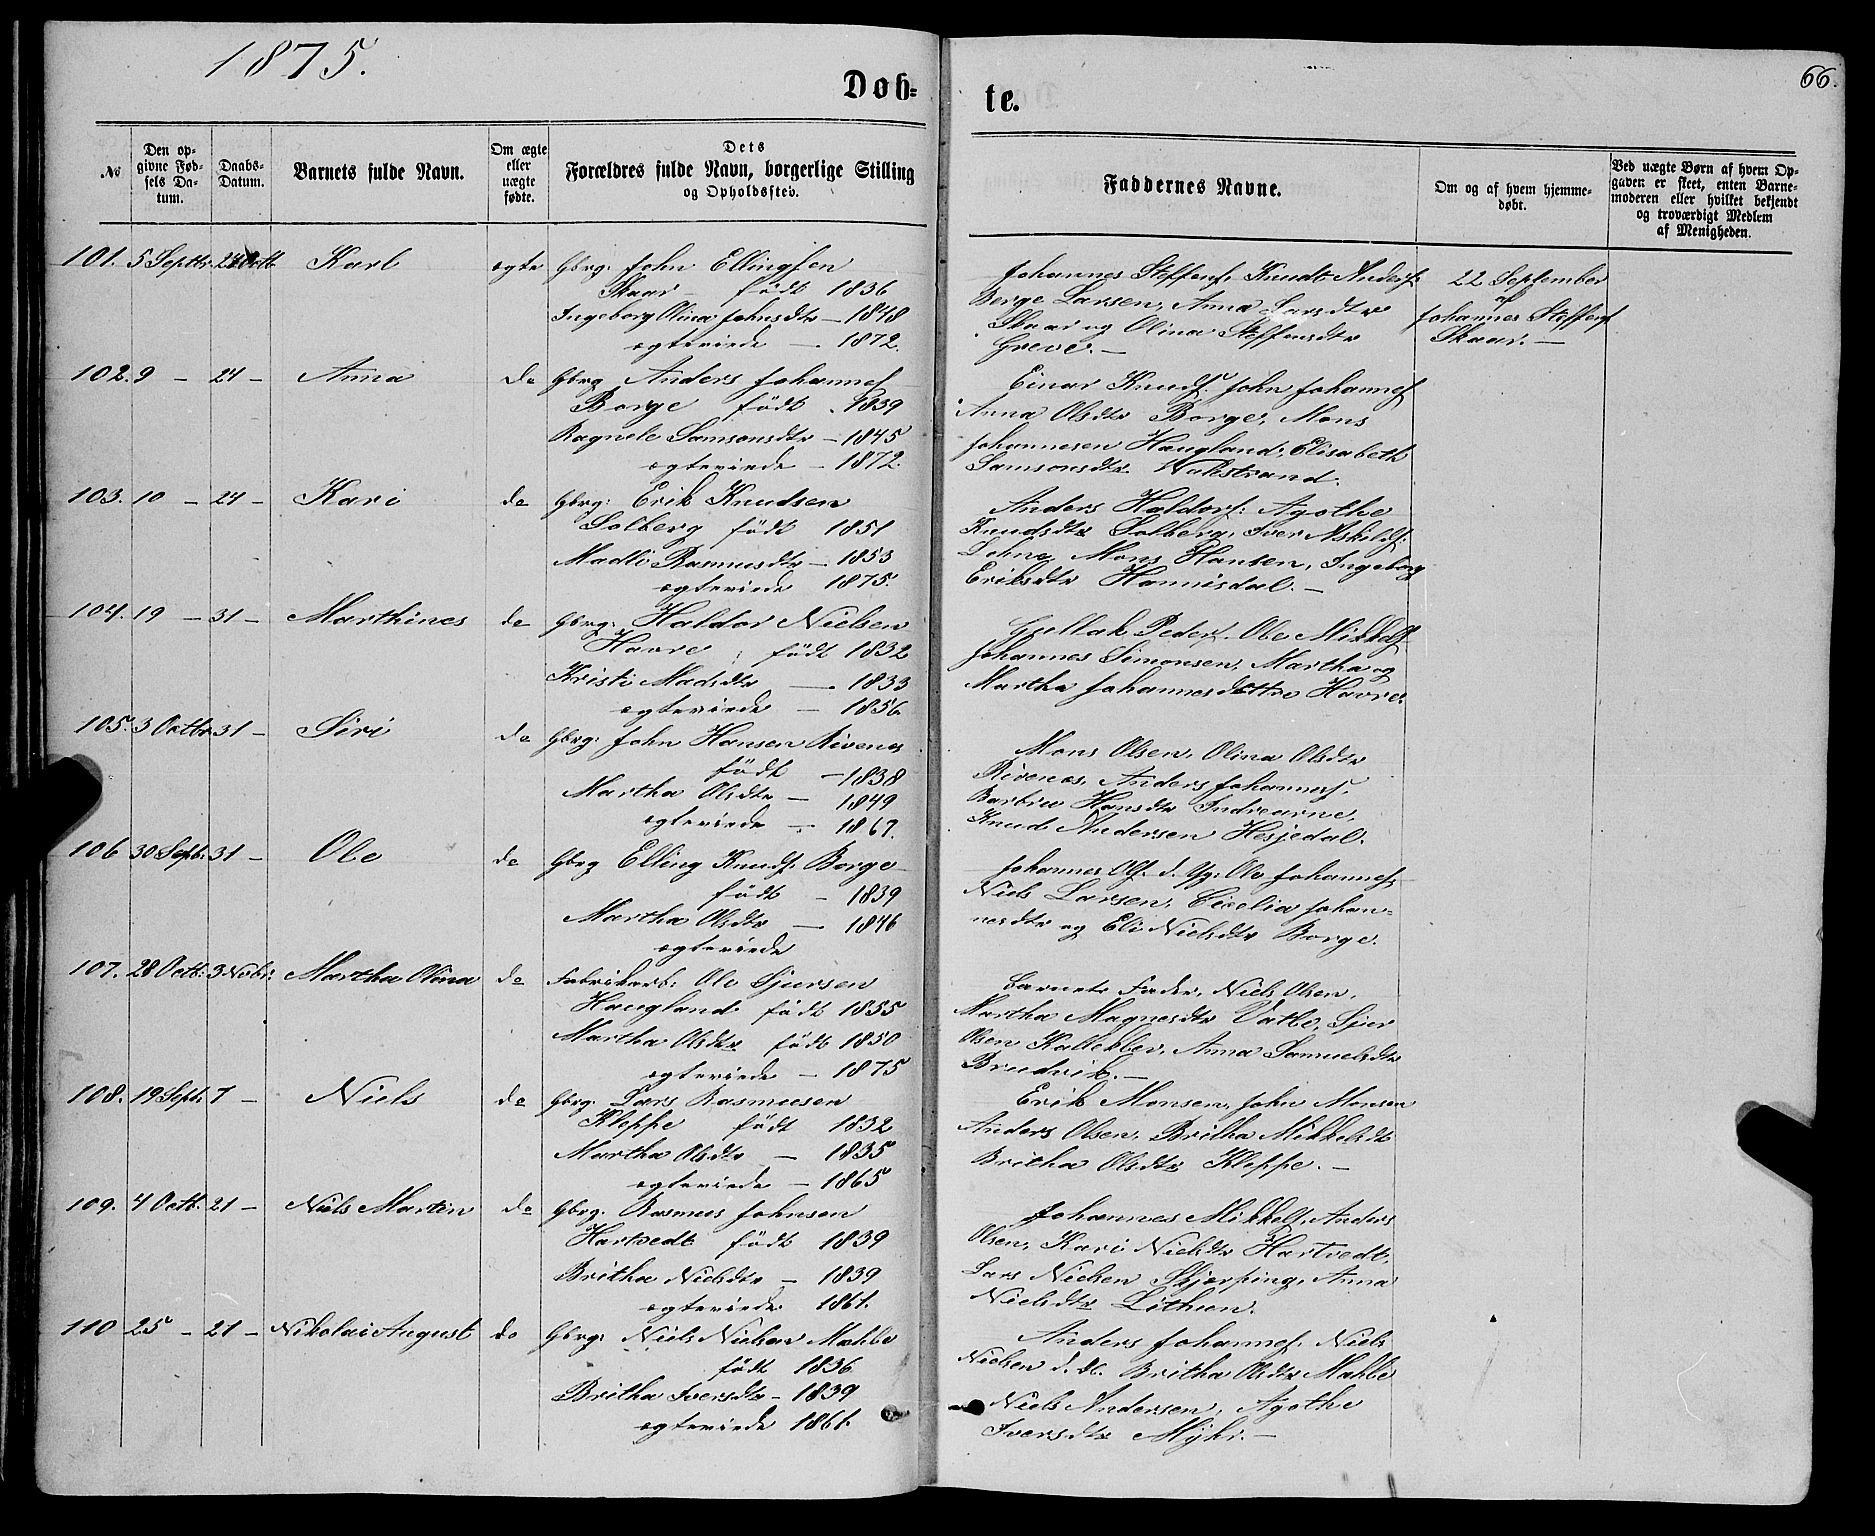 1875.
66.
Døb=
te.
№
Den op-
givne Fød-
sels Da-
tum.
Daabs-
Datum.
Barnets fulde Navn.
Om ægte
eller
uægte
fødte.
Dets
Forældres fulde Navn, borgerlige Stilling
og Opholdssted.
Faddernes Navne.
Om og af hvem hjemme-
døbt.
Ved uægte Børn af hvem Op-
gaven er skeet, enten Barne-
moderen eller hvilket bekjendt
og troværdigt Medlem
af Menigheden.
101. 5 Septbr. 24 Octb Karl ægte Gbrg: John Ellingsen
Skaar – født 1836
Ingeborg Olina Johnsdtr – 1848
ægteviede – 1872.
Johannes Steffens. Knudt Anders.
Børge Larsen, Anna Larsdtr
Skaar og Olina Steffensdtr
Greve. –
22 September
af
Johannes Steffens
Skaar. –
102. 9 – 24 – Anna do Gbrg Anders Johannes.
Borge født 1839
Ragnele Samsonsdtr – 1845
ægteviede – 1872.
Einar Knuds. John Johannes.
Anna Olsdtr Borge, Mons
Johannesen Haugland, Elisabeth
Samsonsdtr Valestrand.
103. 10 – 24 – Kari do Gbrg: Erik Knudsen
Solberg født 1851
Madli Rasmusdtr – 1853
ægteviede 1875.
Anders Haldors: Agothe
Knudsdtr Solberg, Iver Askilds:
Lohne Mons Hansen, Ingeborg
Eriksdtr Hannisdal. –
104. 19 – 31 – Marthines do Gbrg: Haldor Nielsen
Havre født 1832
Kristi Madsdtr – 1833
ægteviede – 1856.
Gjellak Peders. Ole Mikkels.
Johannes Simonsen, Martha og
Martha Johannesdøttre Havre.
105. 3 Octbr. 31 – Siri do Gbrg: John Hansen Rivenes
født – 1838
Martha Olsdtr – 1849
ægteviede – 1867.
Mons Olsen, Olina Olsdtr
Rivenes, Anders Johannes.
Barbru Hansdtr Indrearne,
Knud Andersen Hesjedal.
106 30 Septb. 31 – Ole do Gbrg Elling Knuds. Borge
født – 1839
Martha Olsdtr – 1846
ægteviede
Johannes Ols. d. Yg. Ole Johannes.
Niels Larsen, Cicelia Johan=
nesdtr og Eli Nielsdtr Borge.
107. 28 Octb. 3 Novbr: Martha Olina do Fabrikarb: Ole Sjursen
Haugland født 1855
Martha Olsdtr født 1850
ægteviede – 1875
Barnets Fader, Niels Olsen,
Martha Magnesdtr Vatle, Sjur
Olsen Kalleklev, Anna Samuelsdtr
Brudvik. –
108. 19 Septr. 7 – Niels do Gbrg: Lars Rasmusen
Kleppe født 1832
Martha Olsdtr – 1835
ægteviede – 1865
Erik Monsen, John Monsen
Anders Olsen, Britha Mikkelsdtr
Britha Olsdtr Kleppe. –
109. 4 Octb. 21 – Niels Martin do Gbrg. Rasmus Johnsen
Hartvedt født 1839
Britha Nielsdtr – 1839
ægteviede 1861.
Johannes Mikkels. Anders
Olsen, Kari Nielsdtr Hartvedt,
Lars Nielsen Skjerping, Anna
Nielsdtr Lithun.
110 25 – 21 – Nikolai August do Gbrg: Niels Nielsen Mahle
født 1836
Britha Iversdtr – 1839
ægteviede 1861.
Anders Johannes. Niels
Nielsen d. Æ. Britha Olsdtr Mahle
Niels Andersen, Agothe
Iversdtr Myhr. –